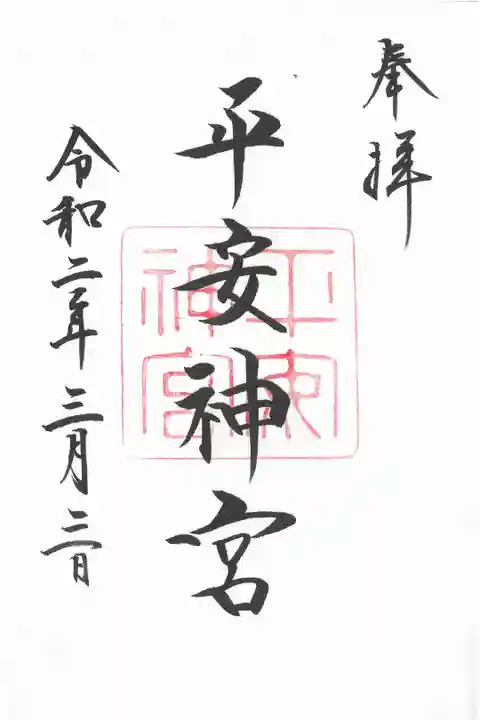 奉拝
平安神宮
平安神宮
令和二年三月三日